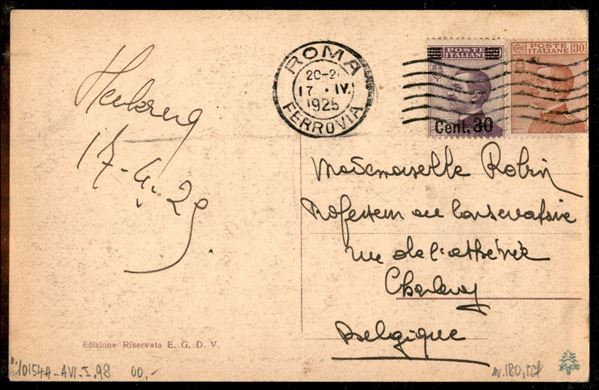 ROMA
20-2
17 · IV
1925
FERROVIA
POSTE
ITALIANE
Cent. 30
POSTE 30
ITALIANE
17-4-25
Mademoiselle Robin
Professeur au Conservatoire
rue de l'athénée
Charleroy
Belgique
Edizione Riservata E. G. D. V.
10154A-AVI-I.98 00,-